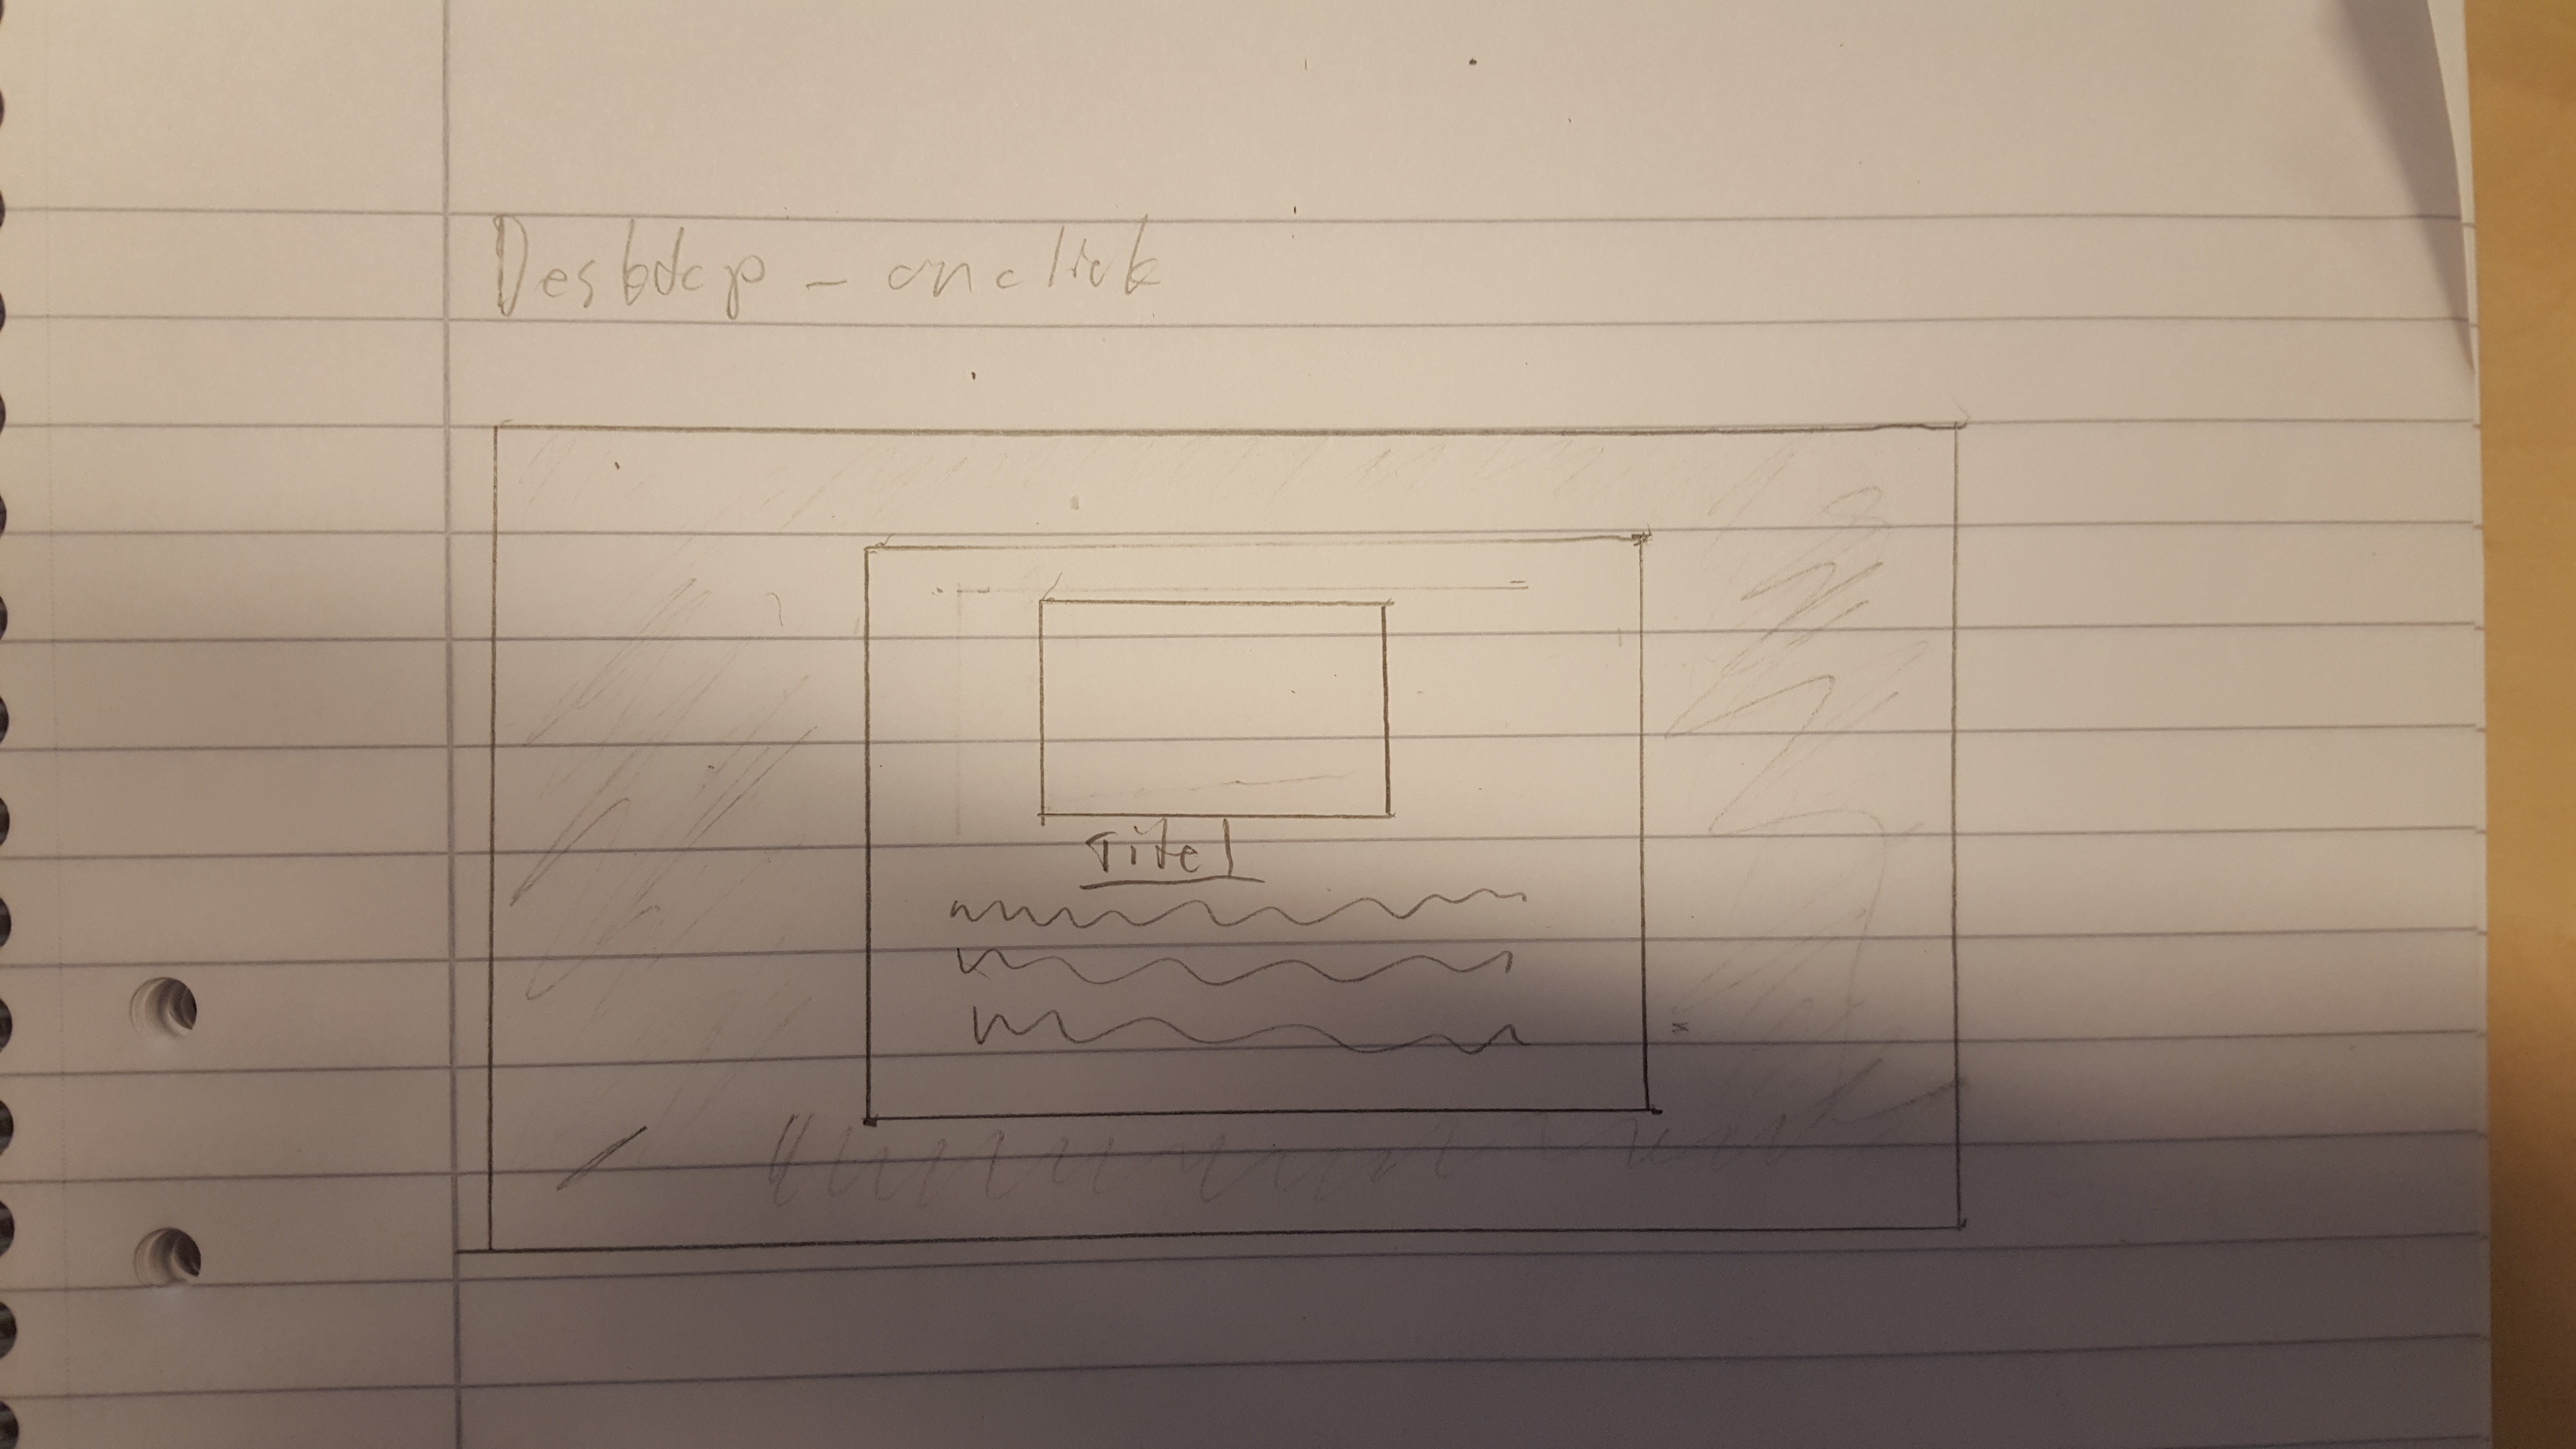 Desktop - onclick
Titel